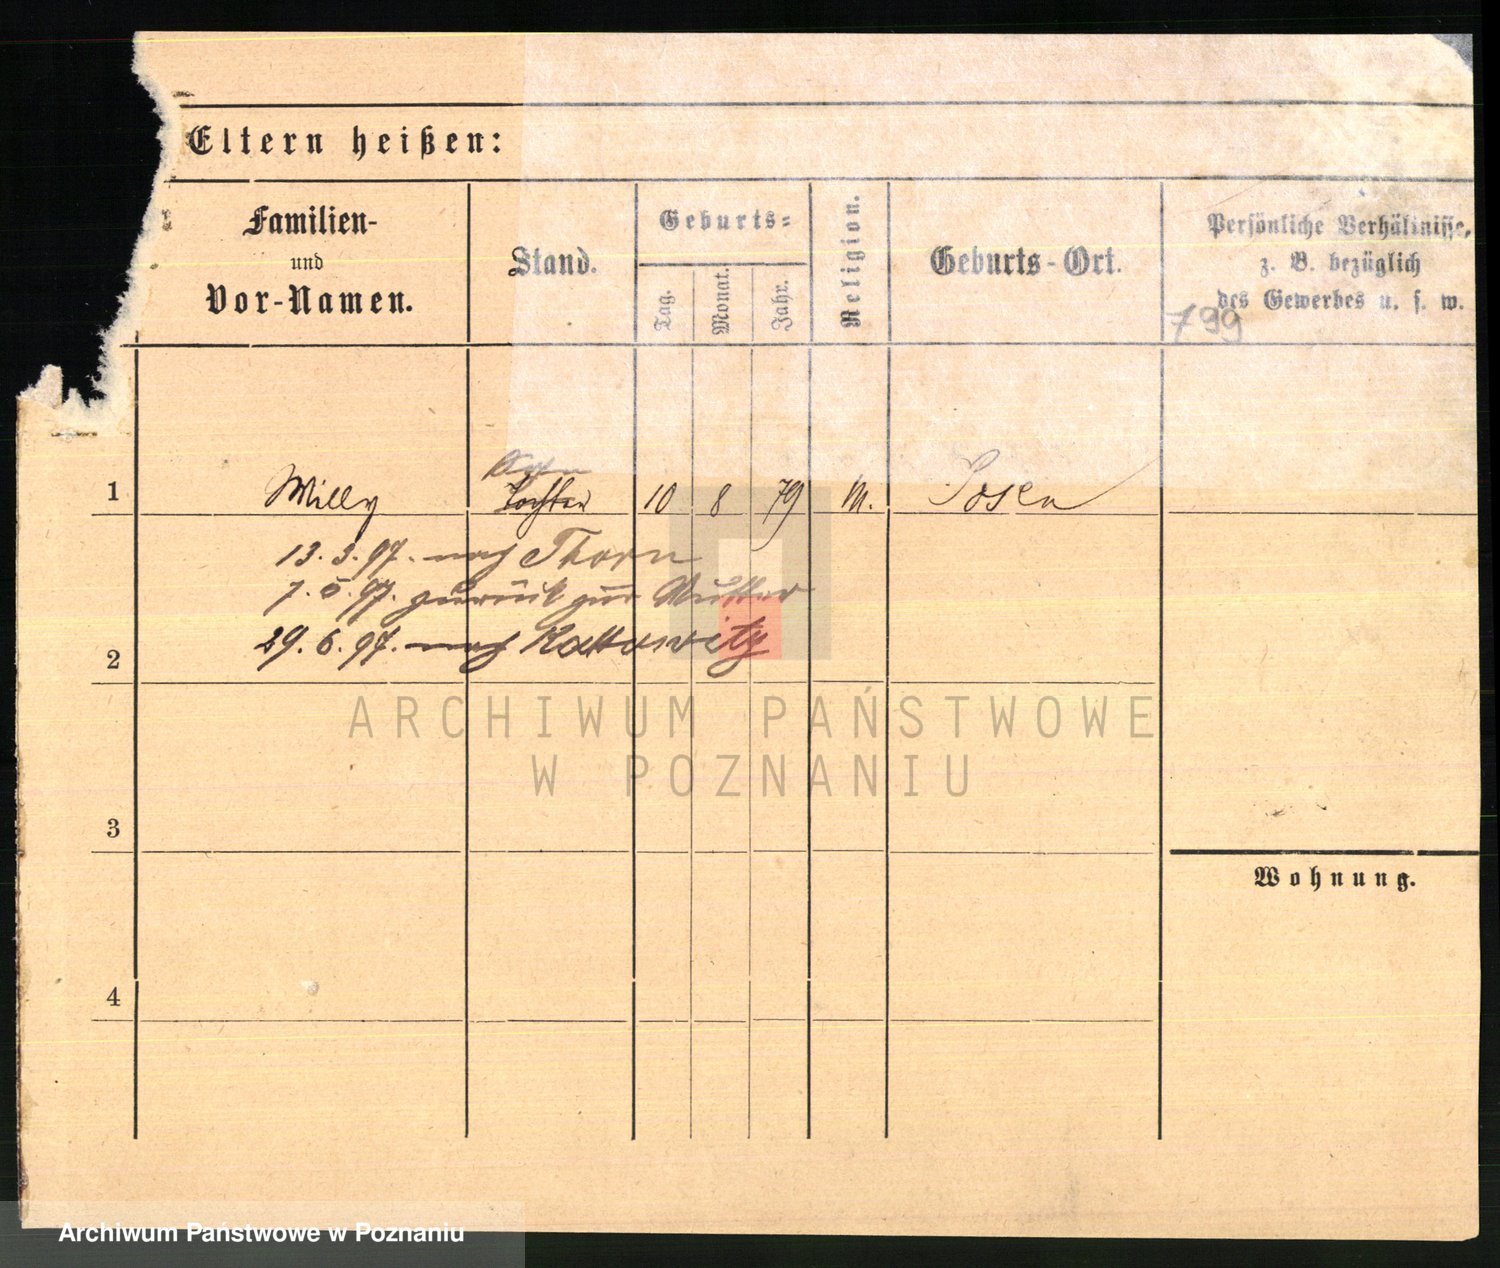 Eltern heißen:
Familien-
und
Vor-Namen.
Stand.
Geburts-
Tag.
Monat.
Jahr.
Religion.
Geburts-Ort.
Persönliche Verhältnisse,
z. B. bezüglich
des Gewerbes u. s. w.
799
Sohn
1 Willy Tochter 10 8 79 m. Posen
13. 3. 97. nach Thorn
7. 5. 97. zurück zur Mutter
29. 6. 97. nach Kattowitz
2
ARCHIWUM PAŃSTWOWE
W POZNANIU
3
Wohnung.
4
Archiwum Państwowe w Poznaniu